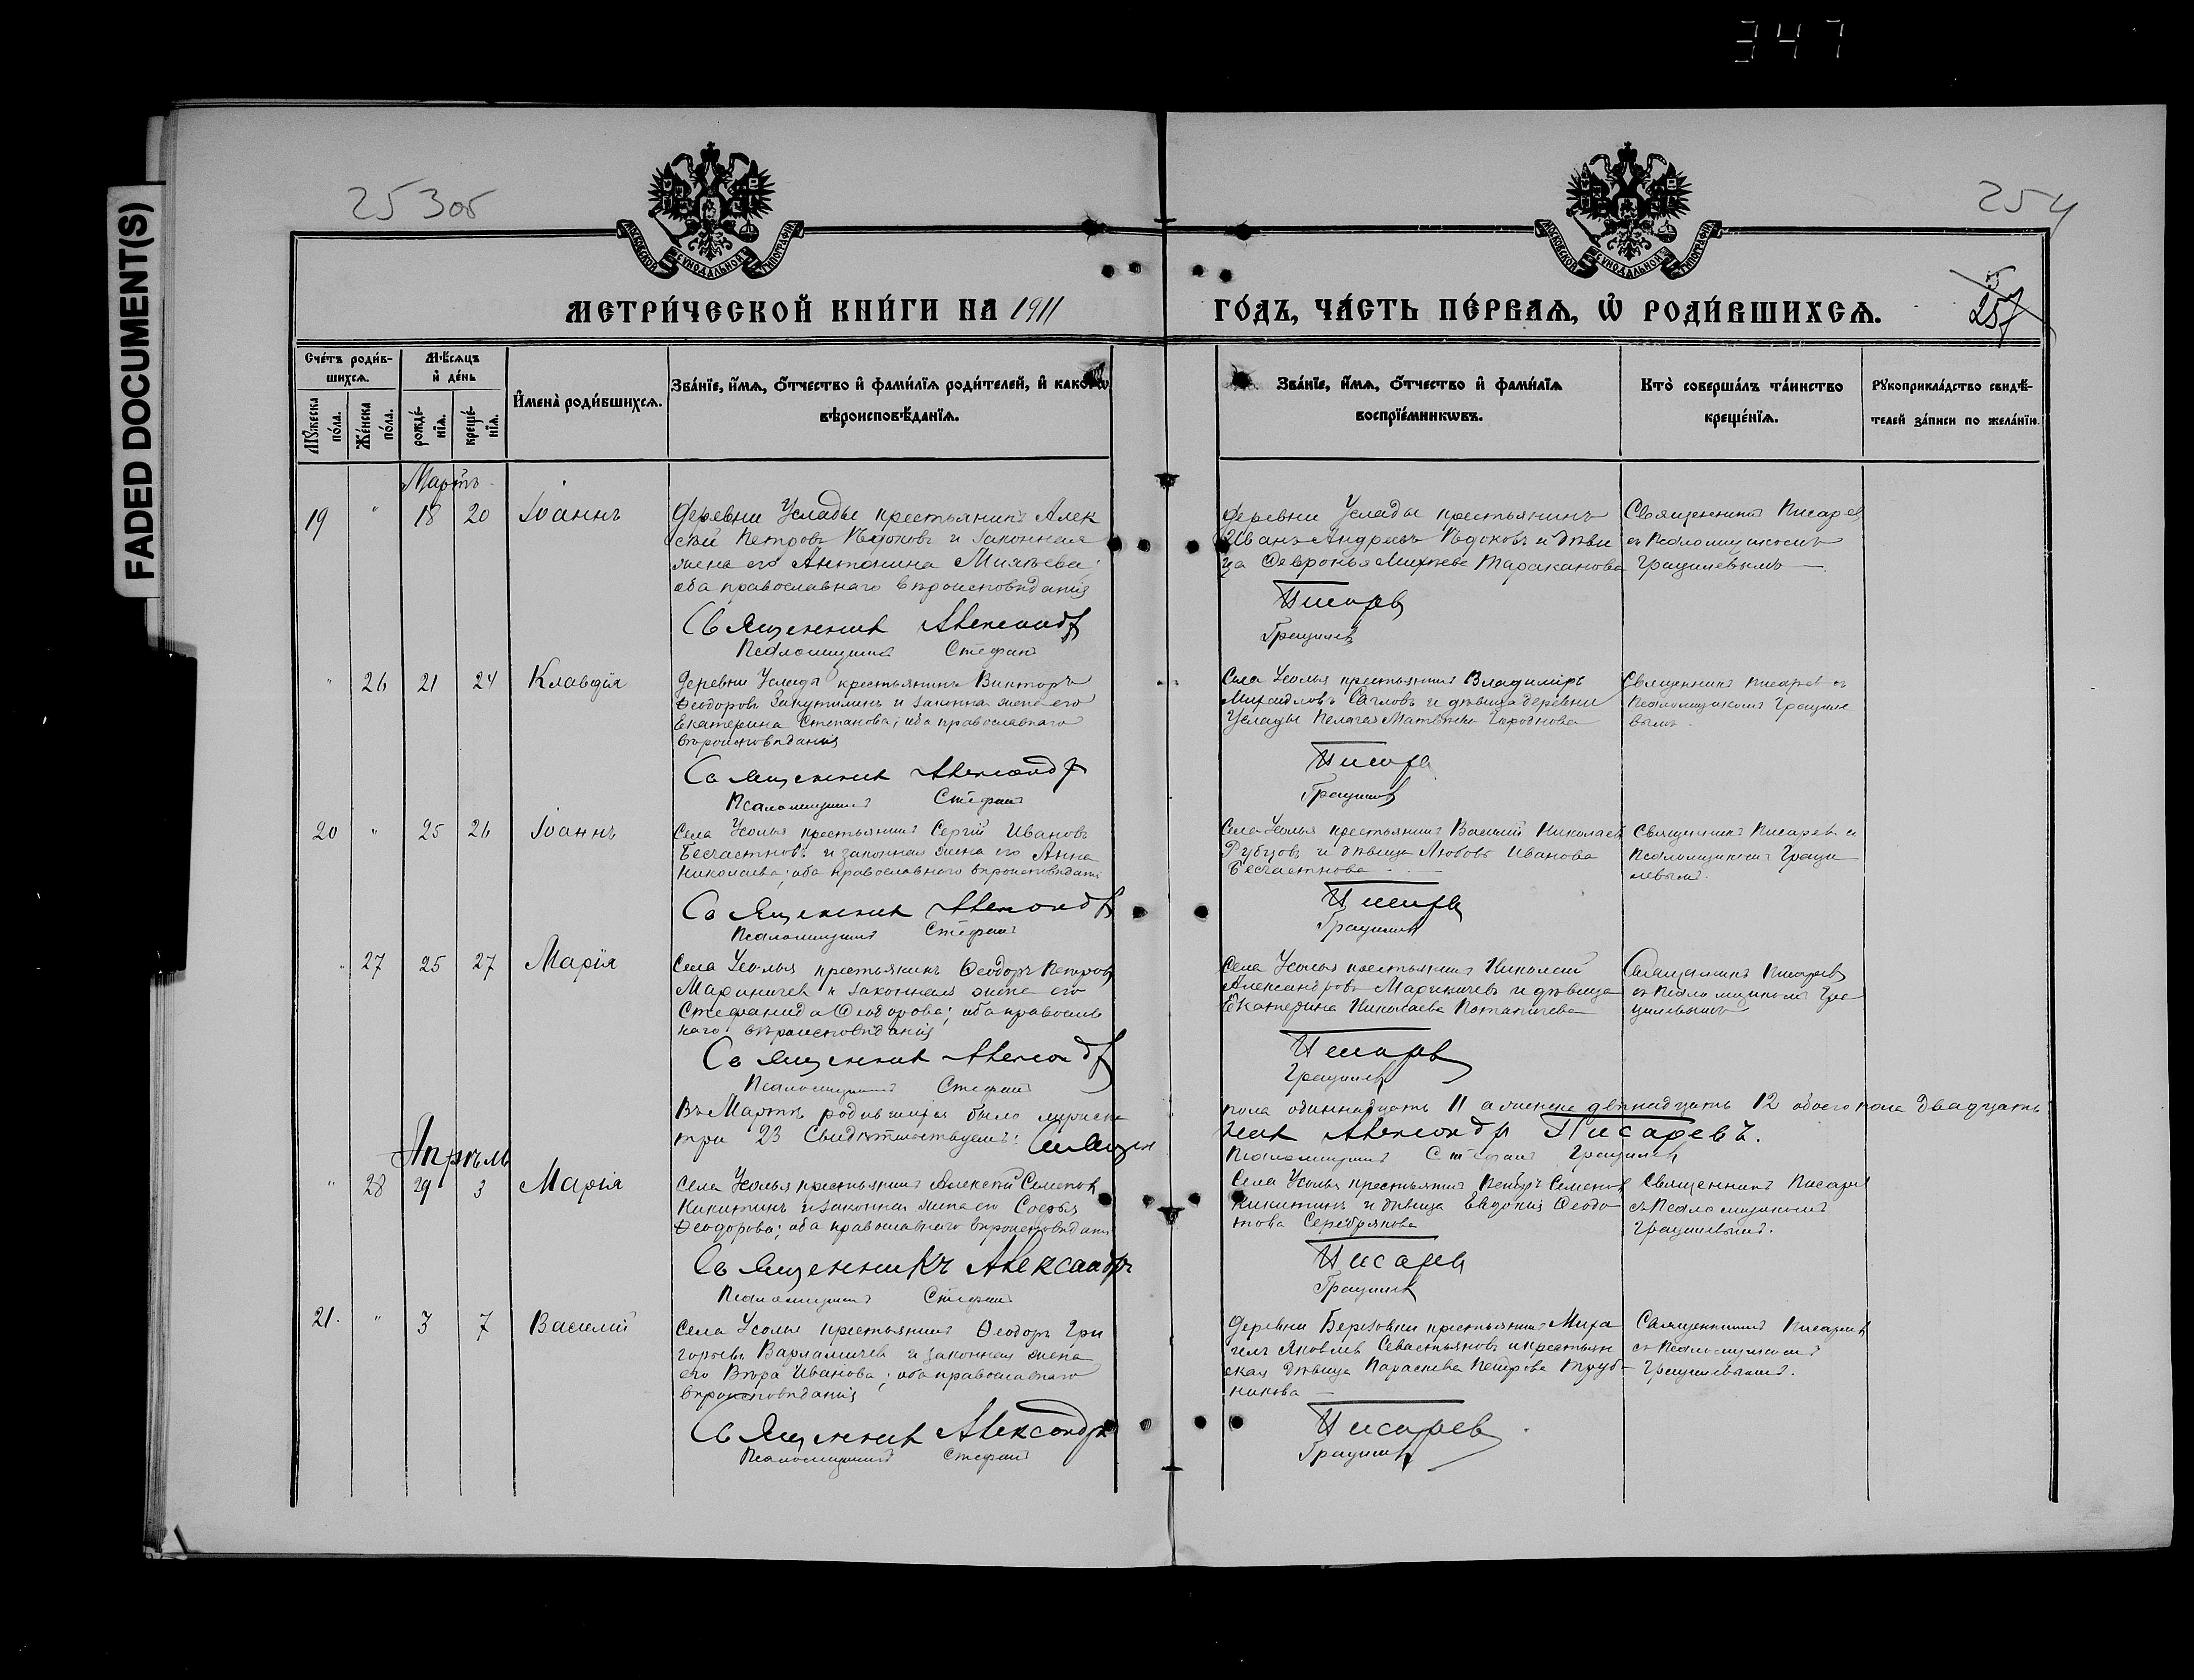 347
FADED DOCUMENT(S)
253об
254
МОСКОВСКОЙ СѴНОДАЛЬНОЙ ТИПОГРАФІИ
МОСКОВСКОЙ СѴНОДАЛЬНОЙ ТИПОГРАФІИ
МЕТРИ́ЧЕСКОЙ КНИ́ГИ НА 1911
ГО́ДЪ, ЧА́СТЬ ПЕ́РВАѦ, Ѡ҆ РОДИ́ВШИХСѦ.
257
Сче́тъ роди́в-
шихсѧ.
Мѣ́сѧцъ
и҆ де́нь
Мꙋ́жеска
по́ла.
Же́нска
по́ла.
рожде́-
нїѧ.
креще́-
нїѧ.
И҆мена̀ роди́вшихсѧ.
Зва́нїе, и҆́мѧ, ѻ҆́тчество и҆ фами́лїѧ роди́телей, и҆ како́гѡ
вѣроисповѣ́данїѧ.
Зва́нїе, и҆́мѧ, ѻ҆́тчество и҆ фами́лїѧ
воспрїе́мникѡвъ.
Кто̀ соверша́лъ та́инство
креще́нїѧ.
Рꙋкоприкла́дство свидѣ́-
телей за́писи по жела́нїю.
Мартъ
19 " 18 20 Іоаннъ
Деревни Услады крестьянинъ Алек
сѣй Петровъ и законная
жена его Антонина
оба православнаго вѣроисповѣданія
Священникъ Александр
Псаломщикъ Стефанъ
деревни Услады крестьянинъ
Иванъ Андреевъ и дѣви
ца Тараканова
Писарев
Грацилев
Священникъ Писарев
съ Псаломщикомъ
Грацилевымъ —
" 26 21 24 Клавдія
Деревни Услады крестьянинъ Викторъ
Ѳеодоровъ и законная жена его
Екатерина Степанова; оба православнаго
вѣроисповѣданія
Священник Александр
Псаломщикъ Стефанъ
Села Усолья крестьянинъ Владиміръ
Михайловъ и дѣвица деревни
Услады Пелагея
Писарев
Грацилев
Священникъ Писарев съ
Псаломщикомъ Грациле
вымъ
20 " 25 26 Іоаннъ
Села Усолья крестьянинъ Сергій Ивановъ
Безчастновъ и законная жена его Анна
Николаева; оба православнаго вѣроисповѣданія
Священник Александр
Псаломщикъ Стефанъ
Села Усолья крестьянинъ Василій Николаев
Рубцовъ и дѣвица Любовь Иванова
Безчастнова
Писарев
Грацилев
Священникъ Писарев съ
Псаломщикомъ Граци
левымъ.
" 27 25 27 Марія
Села Усолья крестьянинъ Ѳеодоръ Петров
Мариничев и законная жена его
Стефанида Ѳеодорова; оба православ
наго вѣроисповѣданія
Священник Александр
Псаломщикъ Стефанъ
Села Усолья крестьянинъ Николай
Александровъ Мариничевъ и дѣвица
Екатерина Николаева Потапичева
Писарев
Грацилев
Священникъ Писарев
съ Псаломщикомъ Гра
цилевымъ
Въ Мартѣ родившихся было мужеска
пола одиннадцать 11 а женска двѣнадцать 12 обоего пола двадцать
три 23 Свидѣтельствуемъ: Священ
ник Александр Писаревъ.
Псаломщикъ Стефанъ Грацилев
Апрѣль
" 28 29 3 Марія
Села Усолья крестьянинъ Алексѣй Семенов
Никитинъ и законная жена его Софья
Ѳеодорова; оба православнаго вѣроисповѣданія
Священникъ Александръ
Псаломщикъ Стефанъ
Села Усолья крестьянинъ Петръ Семенов
Никитинъ и дѣвица Евдокія Ѳеодо
това Серебрякова
Писарев
Грацилев
Священникъ Писарев
съ Псаломщикомъ
Грацилевымъ.
21. " 3 7 Василій
Села Усолья крестьянинъ Ѳеодоръ Гри
горьевъ Варламичев и законная жена
его Вѣра Иванова; оба православнаго
вѣроисповѣданія
Священник Александръ
Псаломщикъ Стефанъ
Деревни Березовки крестьянинъ Миха
илъ Яковлев Севастьяновъ и крестьян
ская дѣвица Параскева Петрова Труб-
никова —
Писарев
Грацилев
Священникъ Писарев
съ Псаломщикомъ
Грацилевымъ.